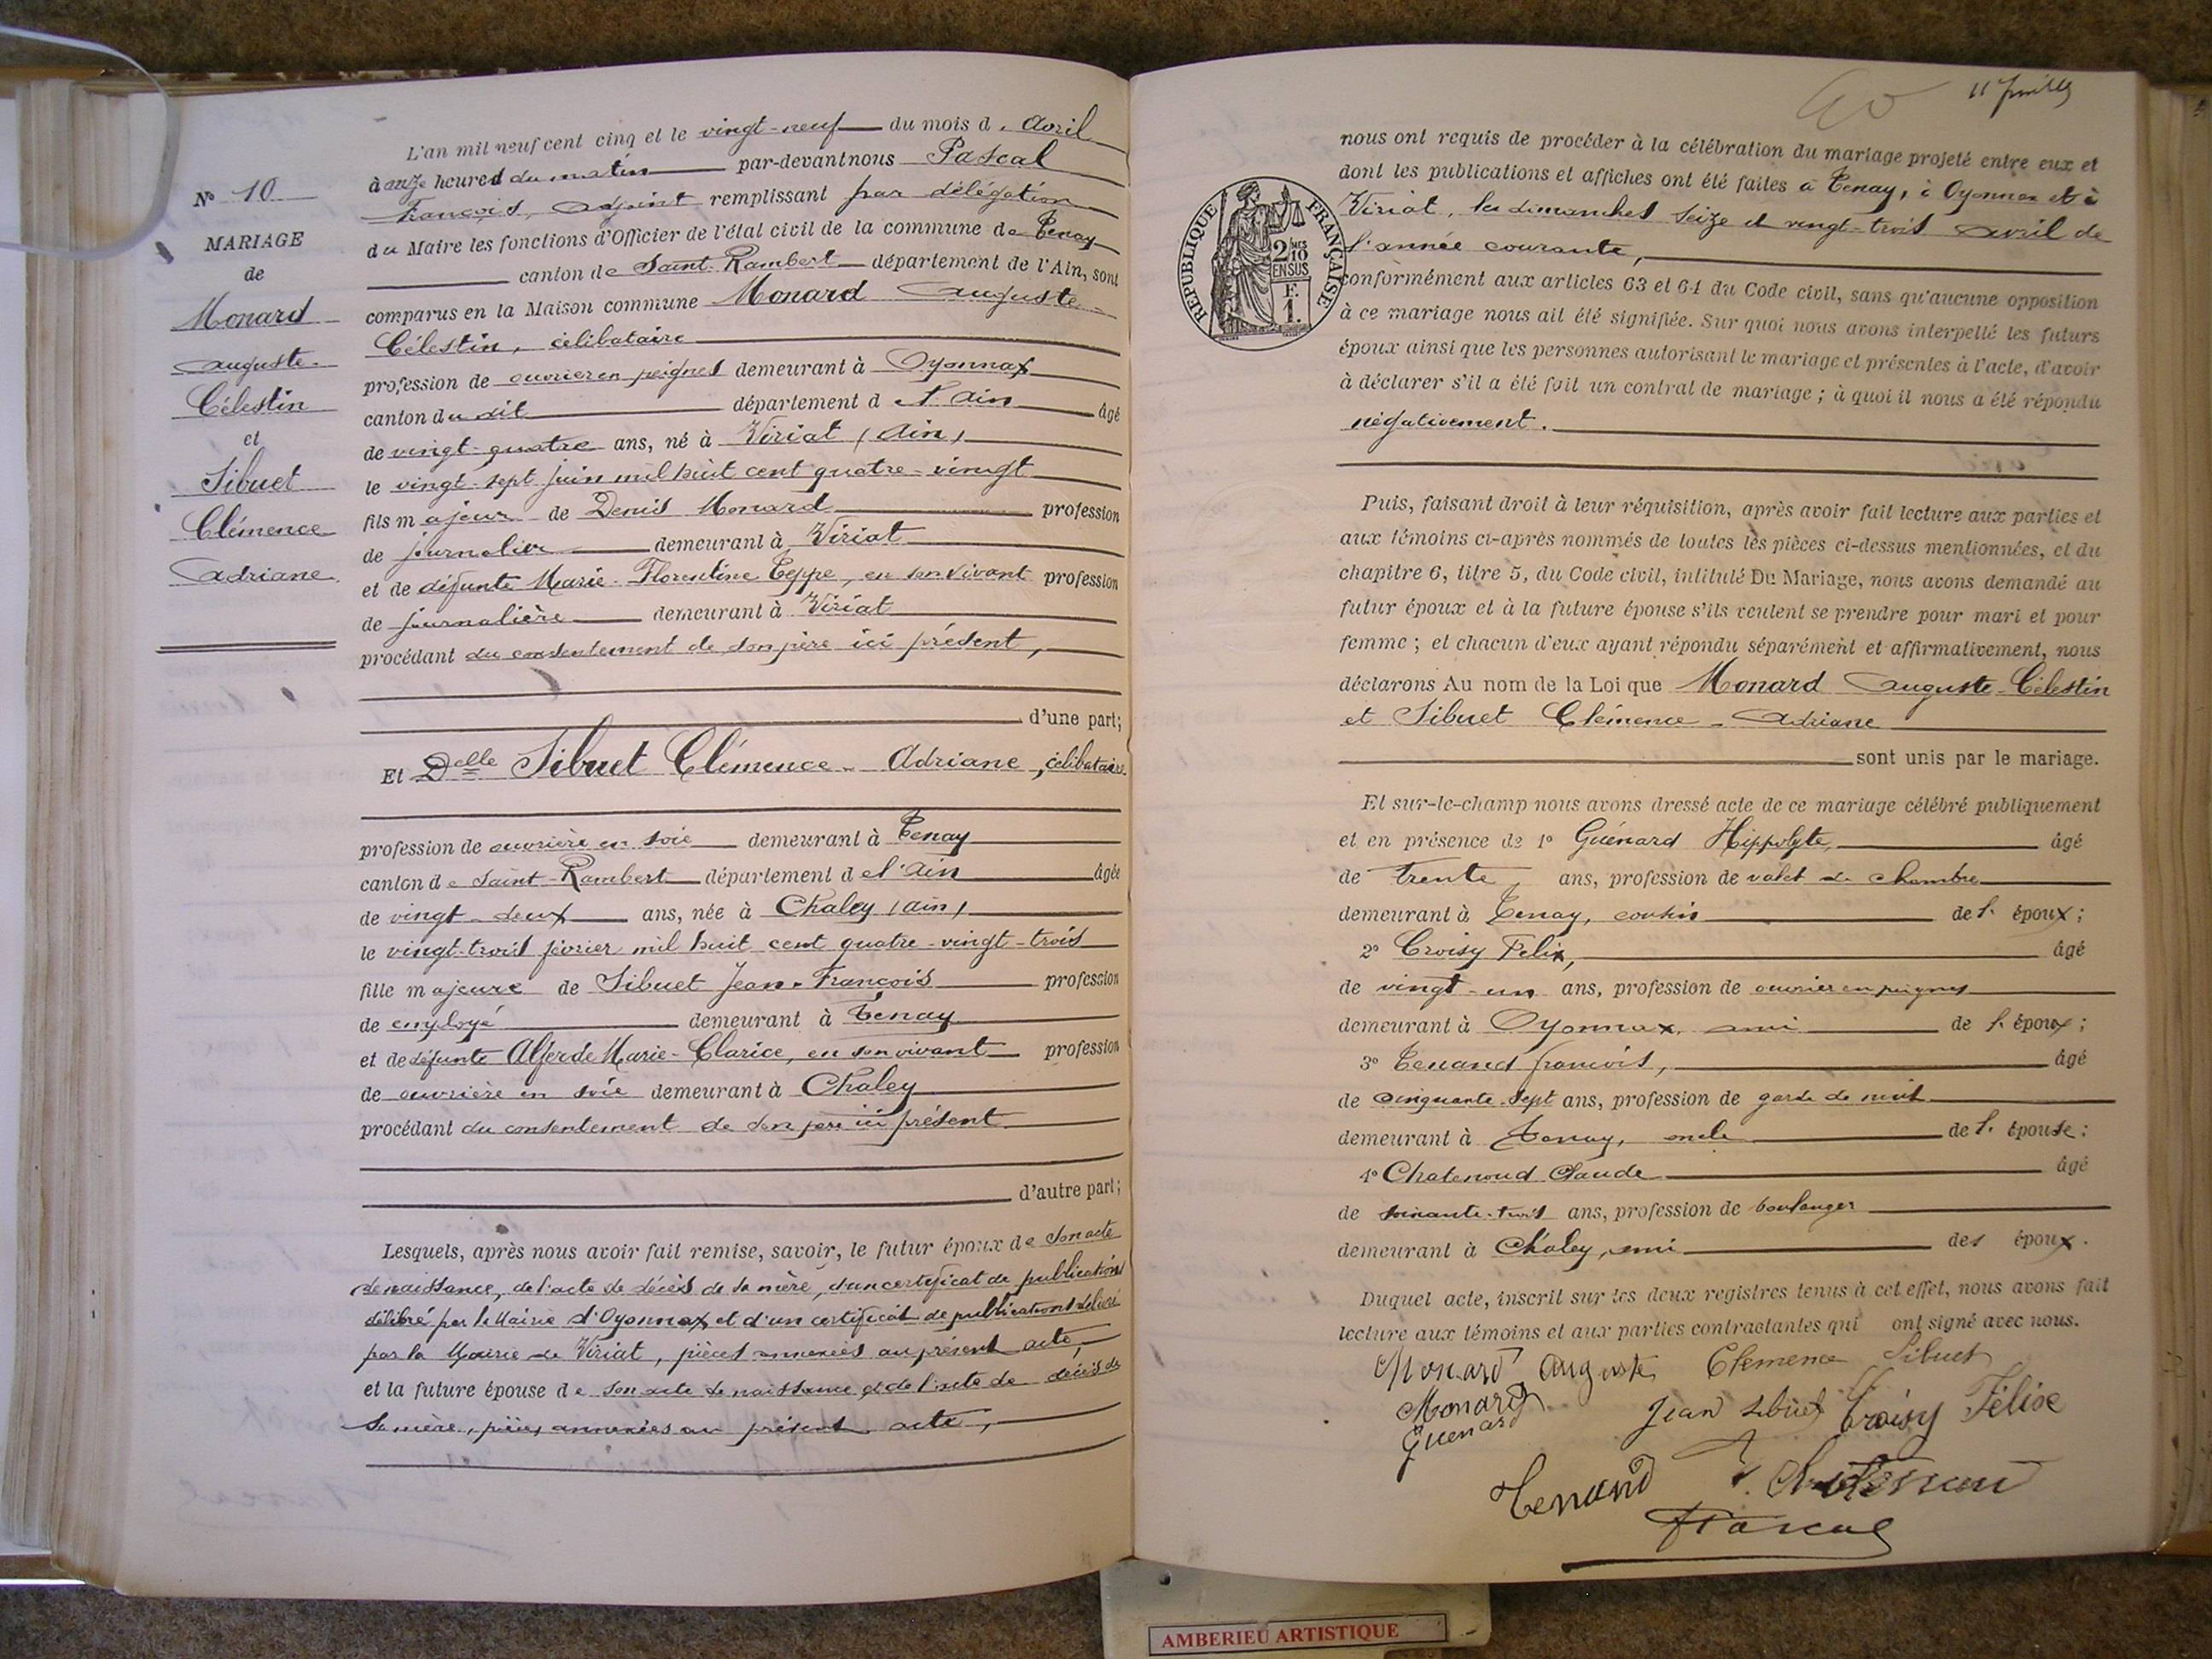 L'an mil neuf cent cinq et le vingt-neuf du mois d'Avril
à onze heures du matin par-devant nous Pascal
François, adjoint remplissant par délégation
du Maire les fonctions d'Officier de l'état civil de la commune de Tenay
canton de Saint-Rambert département de l'Ain, sont
comparus en la Maison commune Monard Auguste
Célestin, célibataire
profession de ouvrier en peignes demeurant à Oyonnax
canton du dit département de l'Ain âgé
de vingt-quatre ans, né à Viriat (Ain)
le vingt-sept juin mil huit cent quatre-vingt
fils majeur de Denis Monard profession
de journalier demeurant à Viriat
et de défunte Marie-Florentine Teppe, en son vivant profession
de journalière demeurant à Viriat
procédant du consentement de son père ici présent,
d'une part;
Et Delle Sibuet Clémence-Adriane, célibataire
profession de ouvrière en soie demeurant à Tenay
canton de Saint-Rambert département de l'Ain âgée
de vingt-deux ans, née à Chaley (Ain)
le vingt-trois février mil huit cent quatre-vingt-trois
fille majeure de Sibuet Jean-François profession
de employé demeurant à Tenay
et de défunte Alferde Marie-Clarice, en son vivant profession
de ouvrière en soie demeurant à Chaley
procédant du consentement de son père ici présent
d'autre part;
Lesquels, après nous avoir fait remise, savoir, le futur époux de son acte
de naissance, de l'acte de décès de sa mère, d'un certificat de publications
délibré par la Mairie d'Oyonnax et d'un certificat de publications délivré
par la Mairie de Viriat, pièces annexées au présent acte,
et la future épouse de son acte de naissance et de l'acte de décès de
sa mère, pièces annexées au présent acte,
N° 10
MARIAGE
de
Monard
Auguste
Célestin
et
Sibuet
Clémence
Adriane
11 Juillet
nous ont requis de procéder à la célébration du mariage projeté entre eux et
dont les publications et affiches ont été faites à Tenay, à Oyonnax et à
Viriat, les dimanches seize et vingt-trois avril de
l'année courante,
conformément aux articles 63 et 64 du Code civil, sans qu'aucune opposition
à ce mariage nous ait été signifiée. Sur quoi nous avons interpellé les futurs
époux ainsi que les personnes autorisant le mariage et présentes à l'acte, d'avoir
à déclarer s'il a été fait un contrat de mariage; à quoi il nous a été répondu
négativement.
REPUBLIQUE FRANÇAISE
2/10 MES
EN SUS
F.
1.
Puis, faisant droit à leur réquisition, après avoir fait lecture aux parties et
aux témoins ci-après nommés de toutes les pièces ci-dessus mentionnées, et du
chapitre 6, titre 5, du Code civil, intitulé Du Mariage, nous avons demandé au
futur époux et à la future épouse s'ils veulent se prendre pour mari et pour
femme; et chacun d'eux ayant répondu séparément et affirmativement, nous
déclarons Au nom de la Loi que Monard Auguste-Célestin
et Sibuet Clémence-Adriane
sont unis par le mariage.
Et sur-le-champ nous avons dressé acte de ce mariage célébré publiquement
et en présence de 1° Guénard Hippolyte, âgé
de trente ans, profession de valet de chambre
demeurant à Tenay, cousin de l'époux;
2° Croisy Felix, âgé
de vingt-un ans, profession de ouvrier en peignes
demeurant à Oyonnax, ami de l'époux;
3° Tenand françois, âgé
de cinquante-sept ans, profession de garde de nuit
demeurant à Tenay, oncle de l'épouse;
4° Chatenoud Claude âgé
de soixante-trois ans, profession de boulanger
demeurant à Chaley, ami des époux.
Duquel acte, inscrit sur les deux registres tenus à cet effet, nous avons fait
lecture aux témoins et aux parties contractantes qui ont signé avec nous.
Monard Auguste Clemence Sibuet
Monard
Guenard Jean Sibuet Croisy Félix
Tenand
Pascal
AMBERIEU ARTISTIQUE